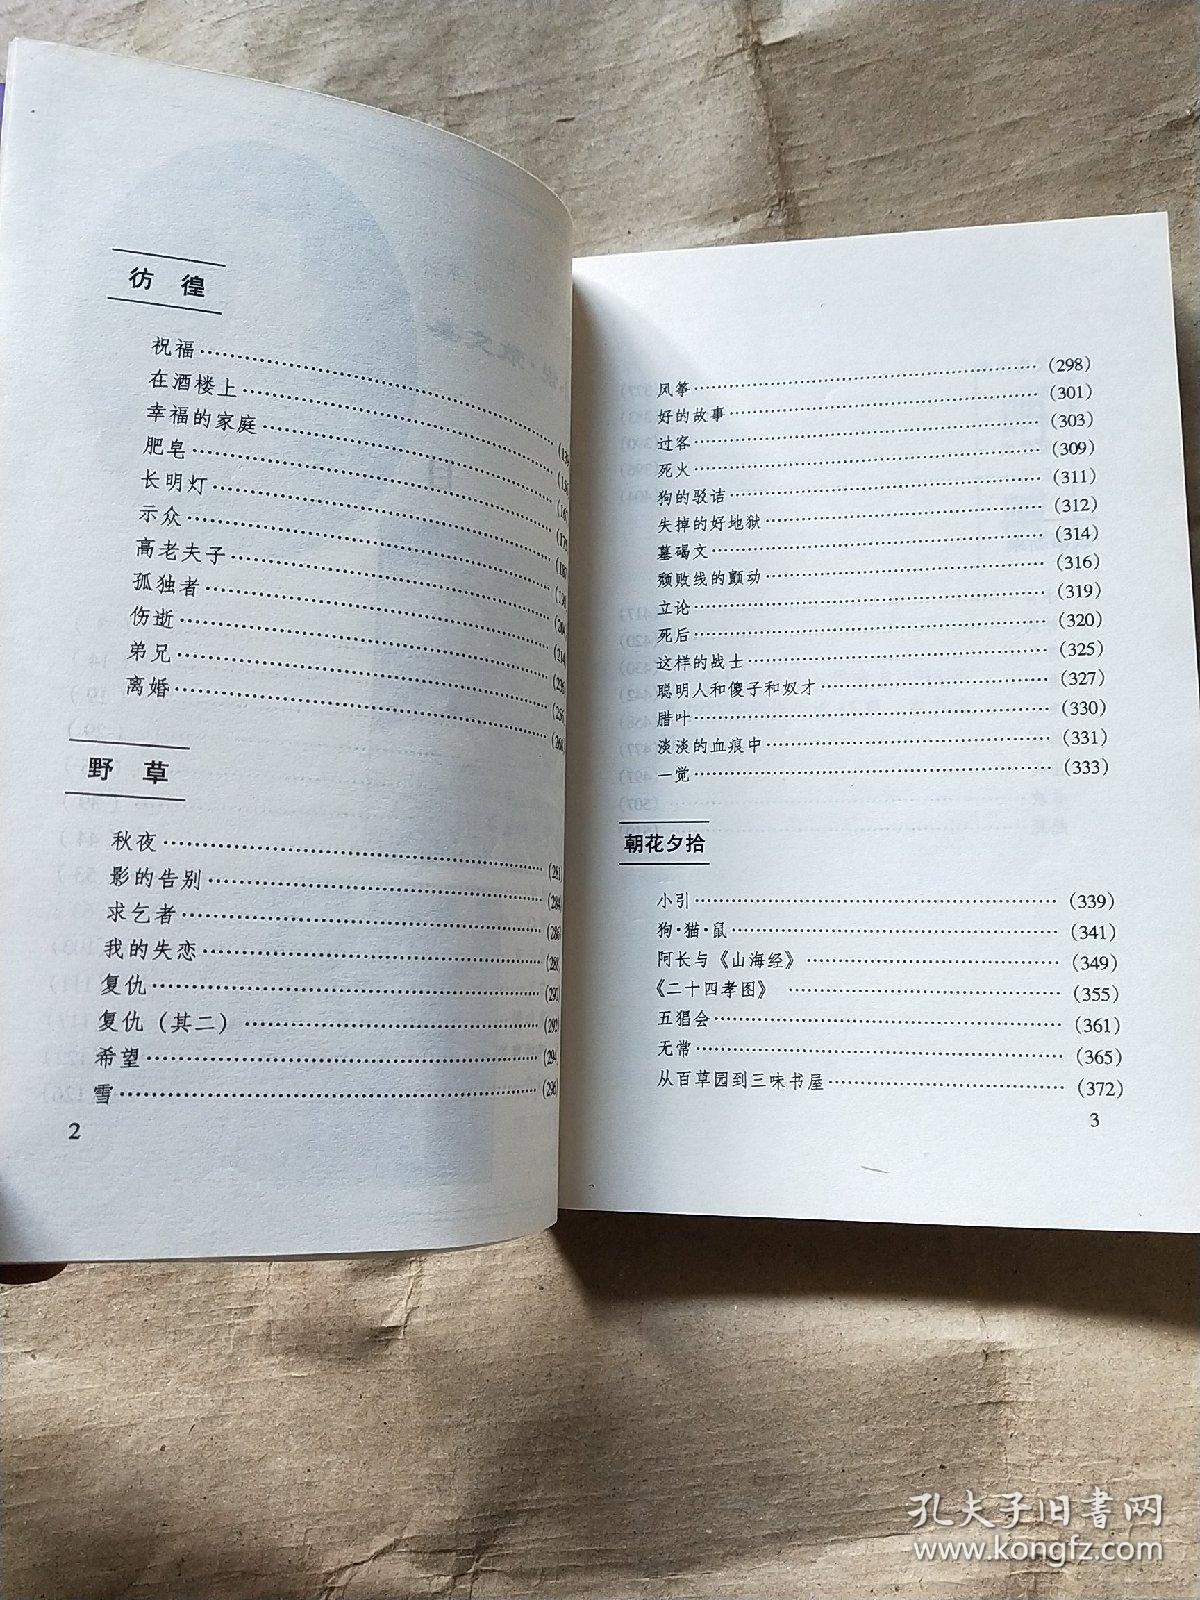 彷徨
祝福
在酒楼上
幸福的家庭
肥皂
长明灯
示众
高老夫子
孤独者
伤逝
弟兄
离婚
野草
秋夜……(281)
影的告别……(284)
求乞者……(286)
我的失恋……(288)
复仇……(290)
复仇（其二）……(292)
希望……(294)
雪……(296)
2
风筝……(298)
好的故事……(301)
过客……(303)
死火……(309)
狗的驳诘……(311)
失掉的好地狱……(312)
墓碣文……(314)
颓败线的颤动……(316)
立论……(319)
死后……(320)
这样的战士……(325)
聪明人和傻子和奴才……(327)
腊叶……(330)
淡淡的血痕中……(331)
一觉……(333)
朝花夕拾
小引……(339)
狗·猫·鼠……(341)
阿长与《山海经》……(349)
《二十四孝图》……(355)
五猖会……(361)
无常……(365)
从百草园到三味书屋……(372)
3
孔夫子旧书网
www.kongfz.com